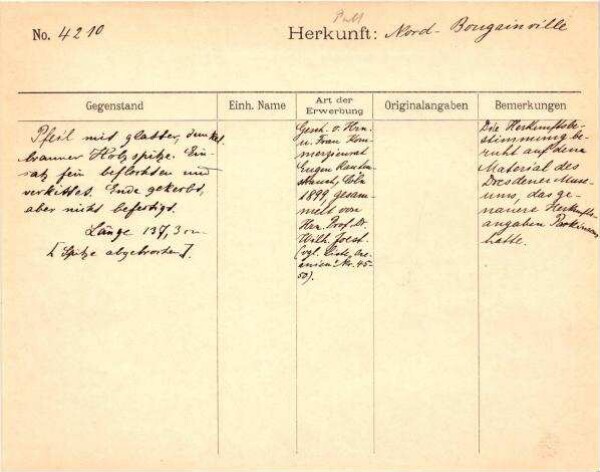 No. 4210
Herkunft: Nord-Bougainville
Gegenstand
Einh. Name
Art der
Erwerbung
Originalangaben
Bemerkungen
Pfeil mit glatter, dunkel-
brauner Holzspitze. Ein-
satz fein beflochten und
verkittet. Ende gekerbt,
aber nicht befestigt.
Länge 137,3 cm
[Spitze abgebrochen].
Gesch. v. Hrn.
u. Frau Kom-
merzienrat
Eugen Rauten-
strauch, Cöln
1899, gesam-
melt von
Hrn. Prof. Dr.
Wilh. Joest.
(vgl. Liste, Oze-
anien: Nr. 45-
50).
Die Herkunftsbe-
stimmung be-
ruht auf dem
Material des
Dresdener Muse-
ums, das ge-
nauere Herkunfts-
angaben Parkinsons
hatte.